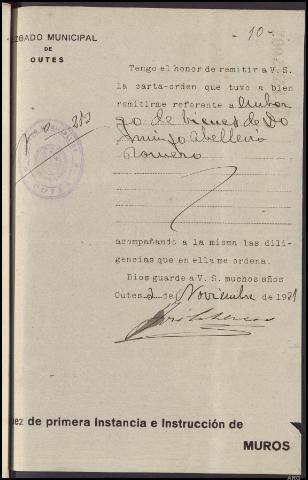 -10-
ZGADO MUNICIPAL
DE
OUTES
Tengo el honor de remitir a V. S.
la carta-orden que tuvo a bien
remitirme referente a Embar
go de bienes de Do
mingo Abelleira
Romero
acompañando a la misma las dili-
gencias que en ella me ordena.
Dios guarde a V. S. muchos años
Outes 2 de Noviembre de 1931
uez de primera Instancia e Instrucción de
MUROS
OUTES